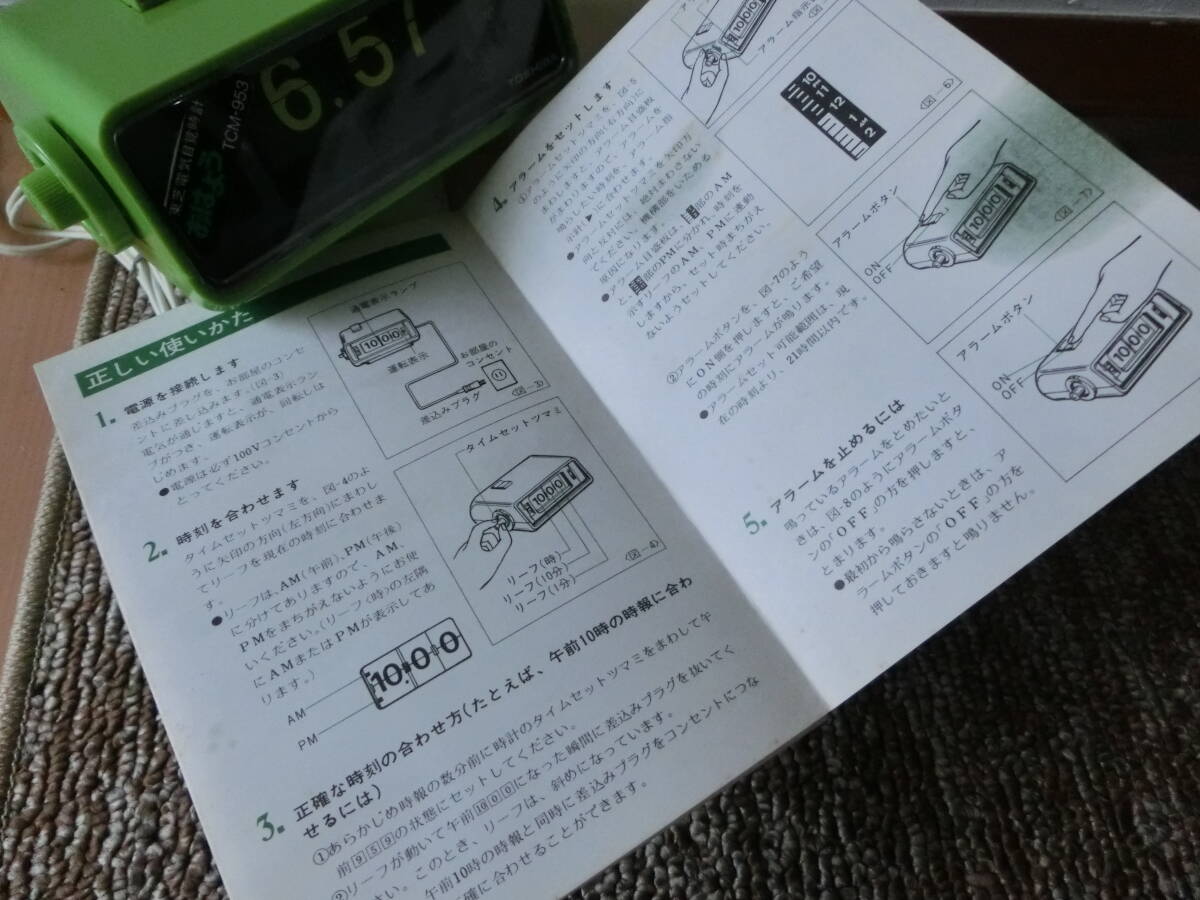 6.57
TOSHIBA
東芝電気目覚時計
おはよう
TCM-953
正しい使いかた
1. 電源を接続します
差込みプラグを、お部屋のコンセ
ントに差し込みます。(図-3)
電気が通じますと、通電表示ラン
プがつき、運転表示が、回転しは
じめます。
●電源は必ず100Vコンセントから
とってください。
通電表示ランプ
1000
運転表示
お部屋の
コンセント
差込みプラグ
(図-3)
2. 時刻を合わせます
タイムセットツマミを、図-4のよ
うに矢印の方向(左方向)にまわし
てリーフを現在の時刻に合わせま
す。
●リーフは、AM(午前)、PM(午後)
に分けてありますので、AM、
PMをまちがえないようにお使
いください。(リーフ〈時〉の左隅
にAMまたはPMが表示してあ
ります。)
タイムセットツマミ
1000
リーフ(時)
リーフ(10分)
リーフ(1分)
(図-4)
1000
AM
PM
3. 正確な時刻の合わせ方(たとえば、午前10時の時報に合わ
せるには)
①あらかじめ時報の数分前に時計のタイムセットツマミをまわして午
前959の状態にセットしてください。
②リーフが動いて午前1000になった瞬間に差込みプラグを抜いてく
さい。このとき、リーフは、斜めになっています。
午前10時の時報と同時に差込みプラグをコンセントにつな
正確に合わせることができます。
4. アラームをセットします
①アラームセットツマミを、図-5
のように矢印の方向(右方向)に
まわしますと、アラーム目盛板
がまわりますので、アラームを
鳴らしたい時刻を、アラーム指
示針▶に合わせます。
●アラームセットツマミを矢印方
向と反対には、絶対まわさない
でください。機構部をいためる
原因になります。
●アラーム目盛板は、 部のAM
と、 部のPMに分かれ、時刻を
示すリーフのAM、PMに連動
しますから、セット時まちがえ
ないようセットしてください。
②アラームボタンを、図-7のよう
にON側を押しますと、ご希望
の時刻にアラームが鳴ります。
●アラームセット可能範囲は、現
在の時刻より、21時間以内です。
1000
アラーム指示
10 11 12 1 2
(図-6)
アラームボタン
ON
OFF
1000
(図-7)
アラームボタン
ON
OFF
1000
5. アラームを止めるには
鳴っているアラームをとめたいと
きは、図-8のようにアラームボタ
ンの「OFF」の方を押しますと、
とまります。
●最初から鳴らさないときは、ア
ラームボタンの「OFF」の方を
押しておきますと鳴りません。